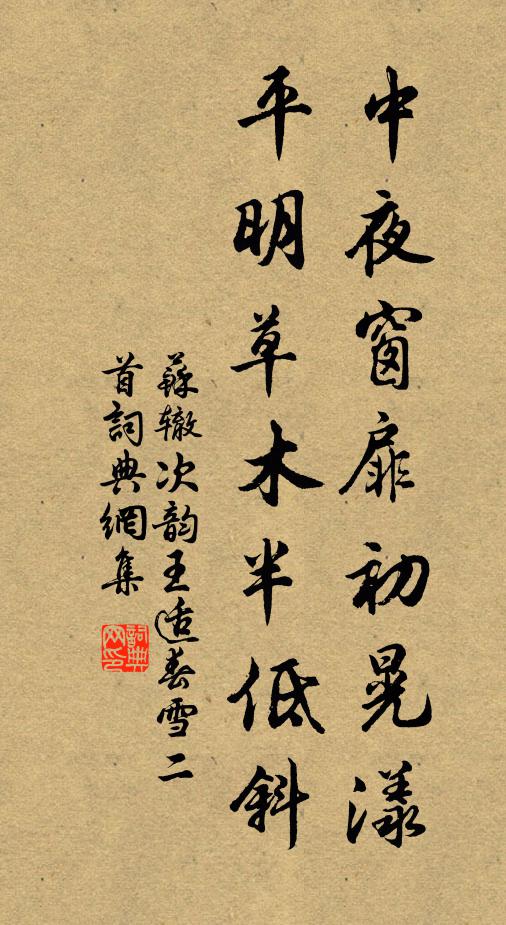 中夜窗扉初晃漾
平明草木半低斜
蘇辙次韵王适春雪二
首詞典網集
詞典
网印